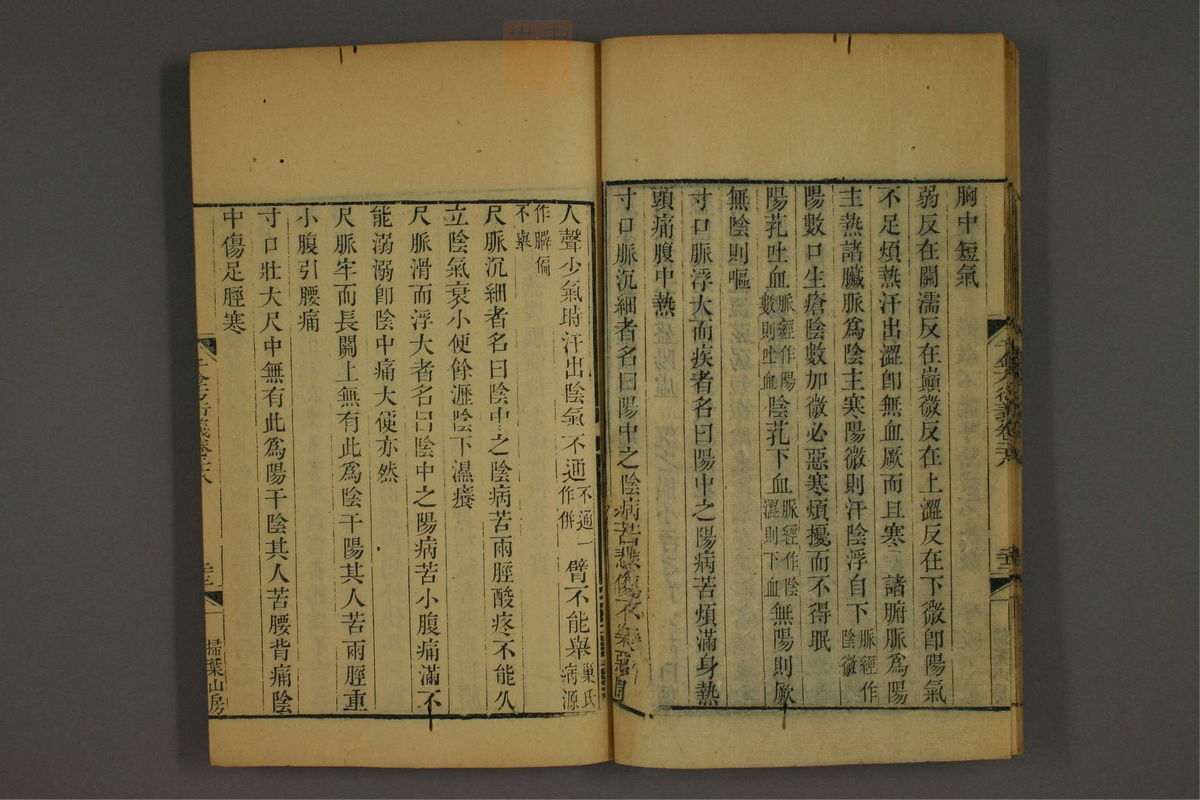 胸中短氣
弱反在關濡反在巔微反在上澀反在下微卽陽氣
不足煩熱汗出澀卽無血厥而且寒 諸腑脈爲陽
主熱諸臟脈爲陰主寒陽微則汗陰浮自下脈經作陰微
陽數口生瘡陰數加微必惡寒煩擾而不得眠
陽芤吐血脈經作陽數則吐血陰芤下血脈經作陰澀則下血無陽則厥
無陰則嘔
寸口脈浮大而疾者名曰陽中之陽病苦煩滿身熱
頭痛腹中熱
寸口脈沉細者名曰陽中之陰病苦悲傷不樂惡聞
人聲少氣時汗出陰氣不通不通一作併臂不能舉巢氏病源作臂偏不舉
尺脈沉細者名曰陰中之陰病苦兩脛酸疼不能久
立陰氣衰小便餘瀝陰下濕癢
尺脈滑而浮大者名曰陰中之陽病苦小腹痛滿不
能溺溺卽陰中痛大便亦然
尺脈牢而長關上無有此爲陰干陽其人苦兩脛重
小腹引腰痛
寸口壯大尺中無有此爲陽干陰其人苦腰背痛陰
中傷足脛寒
掃葉山房